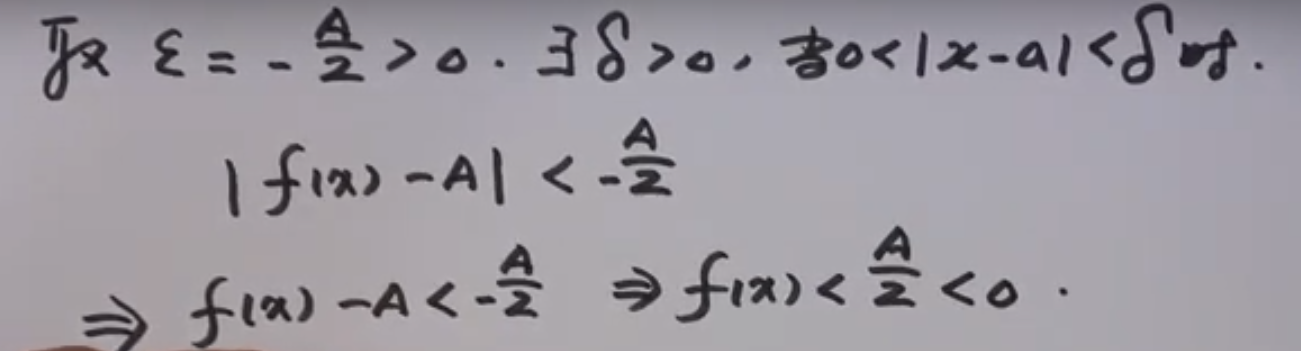 取 ε = -A/2 > 0. ∃δ>0, 当0<|x-a|<δ时.
|f(x)-A| < -A/2
⇒ f(x)-A < -A/2 ⇒ f(x) < A/2 < 0.